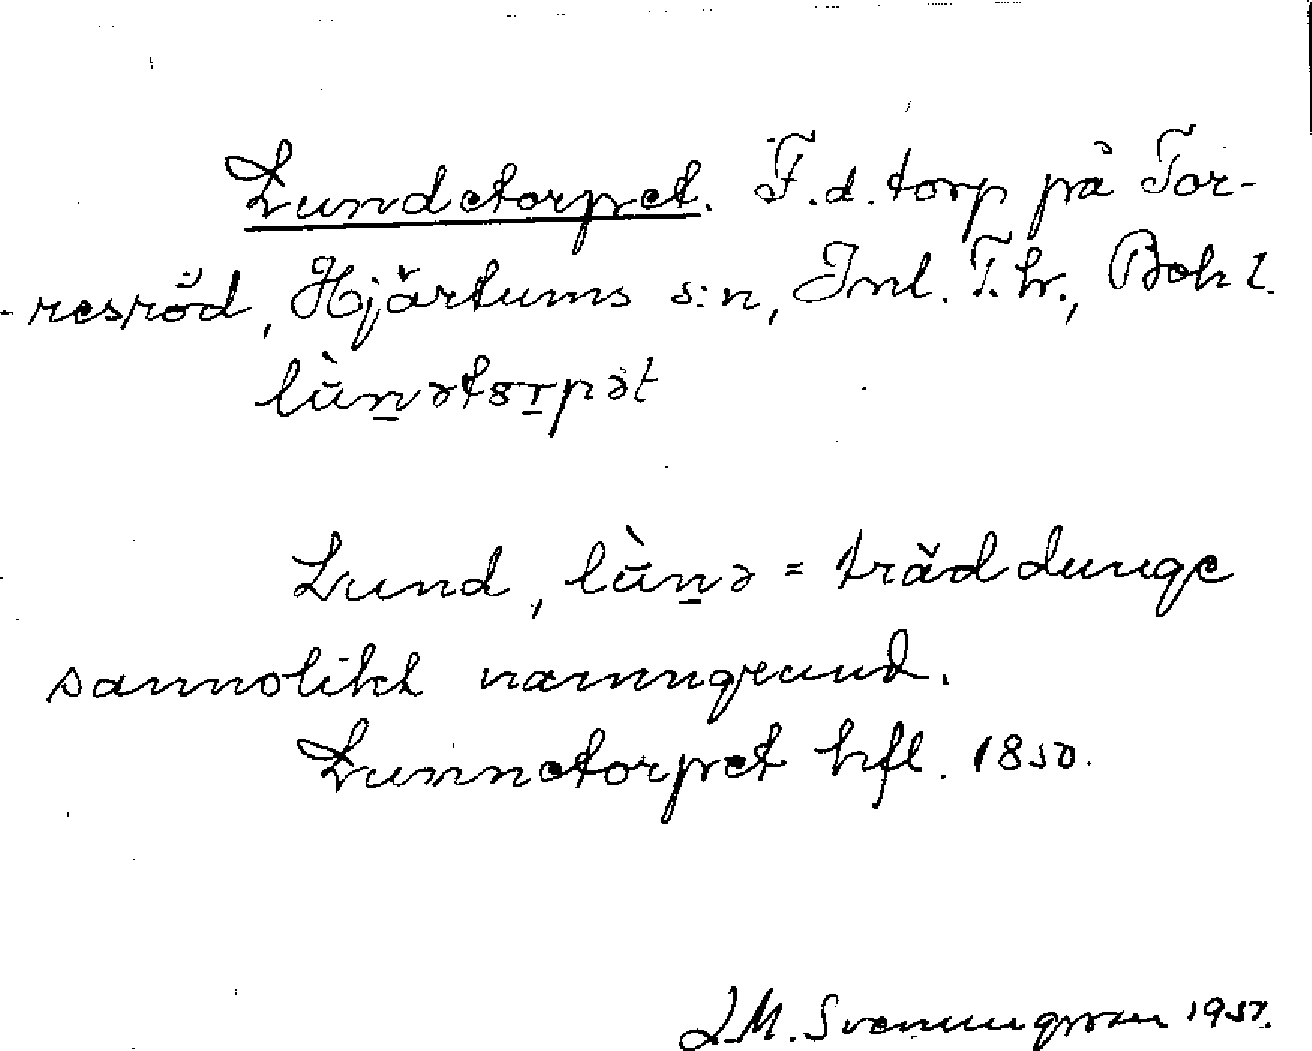 Lundetorpet. F.d. torp på Tor-
resröd, Hjärtums s:n, Inl. T. hr., Bohl.
lù̄n̲ətɤr̲pət
Lund, lù̄n̲ə = träddunge
sannolikt namngrund.
Lunnetorpet hfl. 1850.
J.M. Svenungsson 1957.